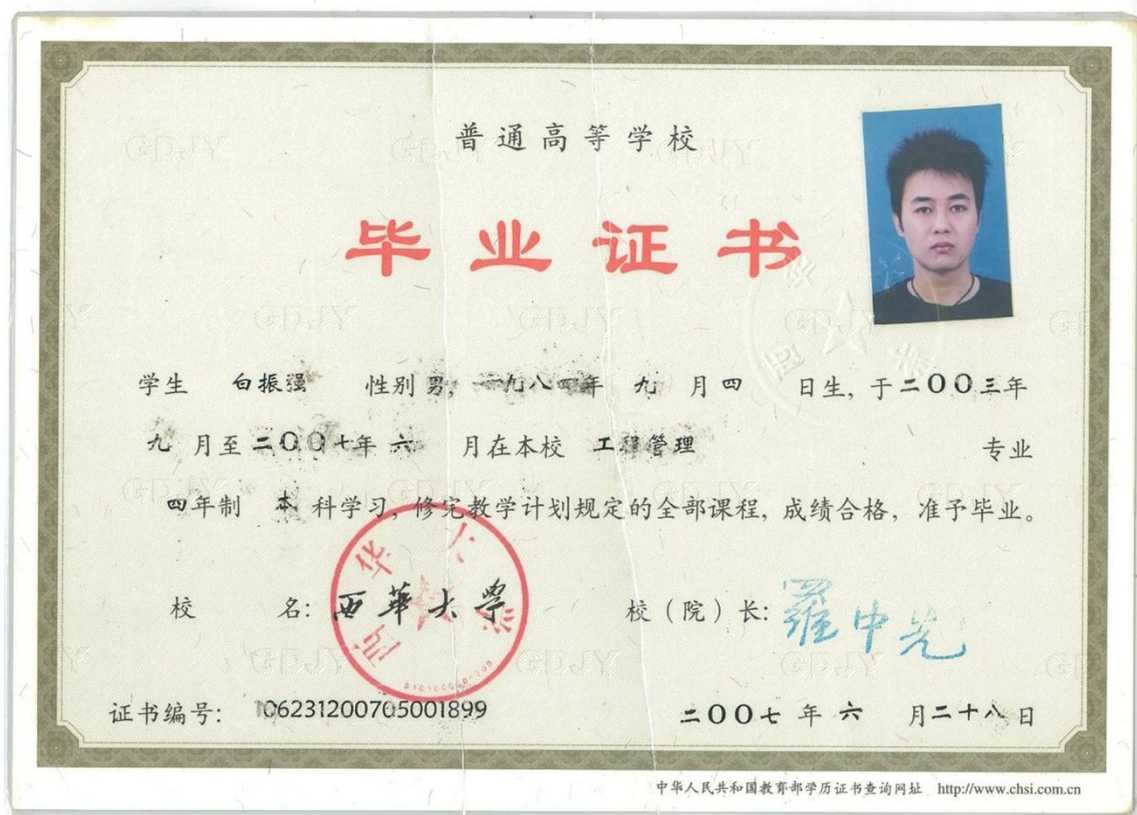 普通高等学校
毕业证书
学生 白振强 性别 男, 一九八四年 九 月 四 日生, 于二〇〇三年
九 月至二〇〇七年 六 月在本校 工程管理 专业
四年制 本 科学习, 修完教学计划规定的全部课程, 成绩合格, 准予毕业。
校 名: 西华大学 校（院）长: 罗中先
证书编号: 106231200705001899 二〇〇七年 六 月二十八日
中华人民共和国教育部学历证书查询网址 http://www.chsi.com.cn